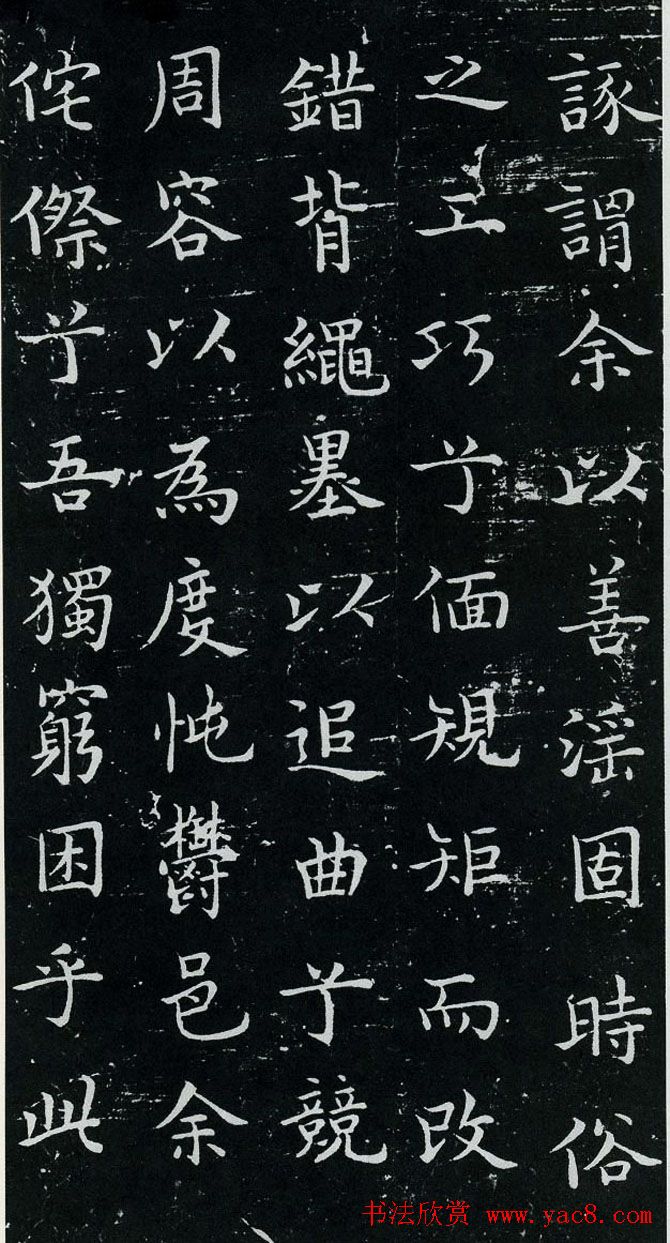 諑謂余以善滛固時俗
之工巧兮偭規矩而改
錯背繩墨以追曲兮競
周容以為度忳鬱邑余
侘傺兮吾獨窮困乎此
书法欣赏 www.yac8.com